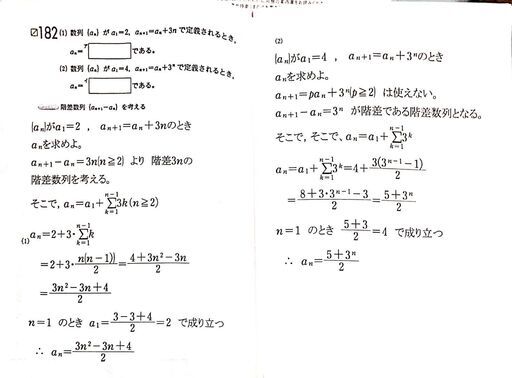 182 (1) 数列 {aₙ} が a₁=2, aₙ₊₁=aₙ+3n で定義されるとき,
aₙ=ア□である。
(2) 数列 {aₙ} が a₁=4, aₙ₊₁=aₙ+3ⁿ で定義されるとき,
aₙ=イ□である。
階差数列 {aₙ₊₁−aₙ} を考える
{aₙ}が a₁=2 , aₙ₊₁=aₙ+3n のとき
aₙを求めよ。
aₙ₊₁−aₙ=3n(n≧2) より 階差3nの
階差数列を考える。
そこで, aₙ=a₁+Σ[k=1→n−1]3k(n≧2)
(1) aₙ=2+3・Σ[k=1→n−1]k
=2+3・n(n−1))/2=(4+3n²−3n)/2
=(3n²−3n+4)/2
n=1 のとき a₁=(3−3+4)/2=2 で成り立つ
∴ aₙ=(3n²−3n+4)/2
(2)
{aₙ}が a₁=4 , aₙ₊₁=aₙ+3ⁿ のとき
aₙを求めよ。
aₙ₊₁=paₙ+3ⁿ(p≧2) は使えない。
aₙ₊₁−aₙ=3ⁿ が階差である階差数列となる。
そこで、そこで、aₙ=a₁+Σ[k=1→n−1]3ᵏ
aₙ=a₁+Σ[k=1→n−1]3ᵏ=4+3(3ⁿ⁻¹−1)/2
=(8+3・3ⁿ⁻¹−3)/2=(5+3ⁿ)/2
n=1 のとき (5+3)/2=4 で成り立つ
∴ aₙ=(5+3ⁿ)/2